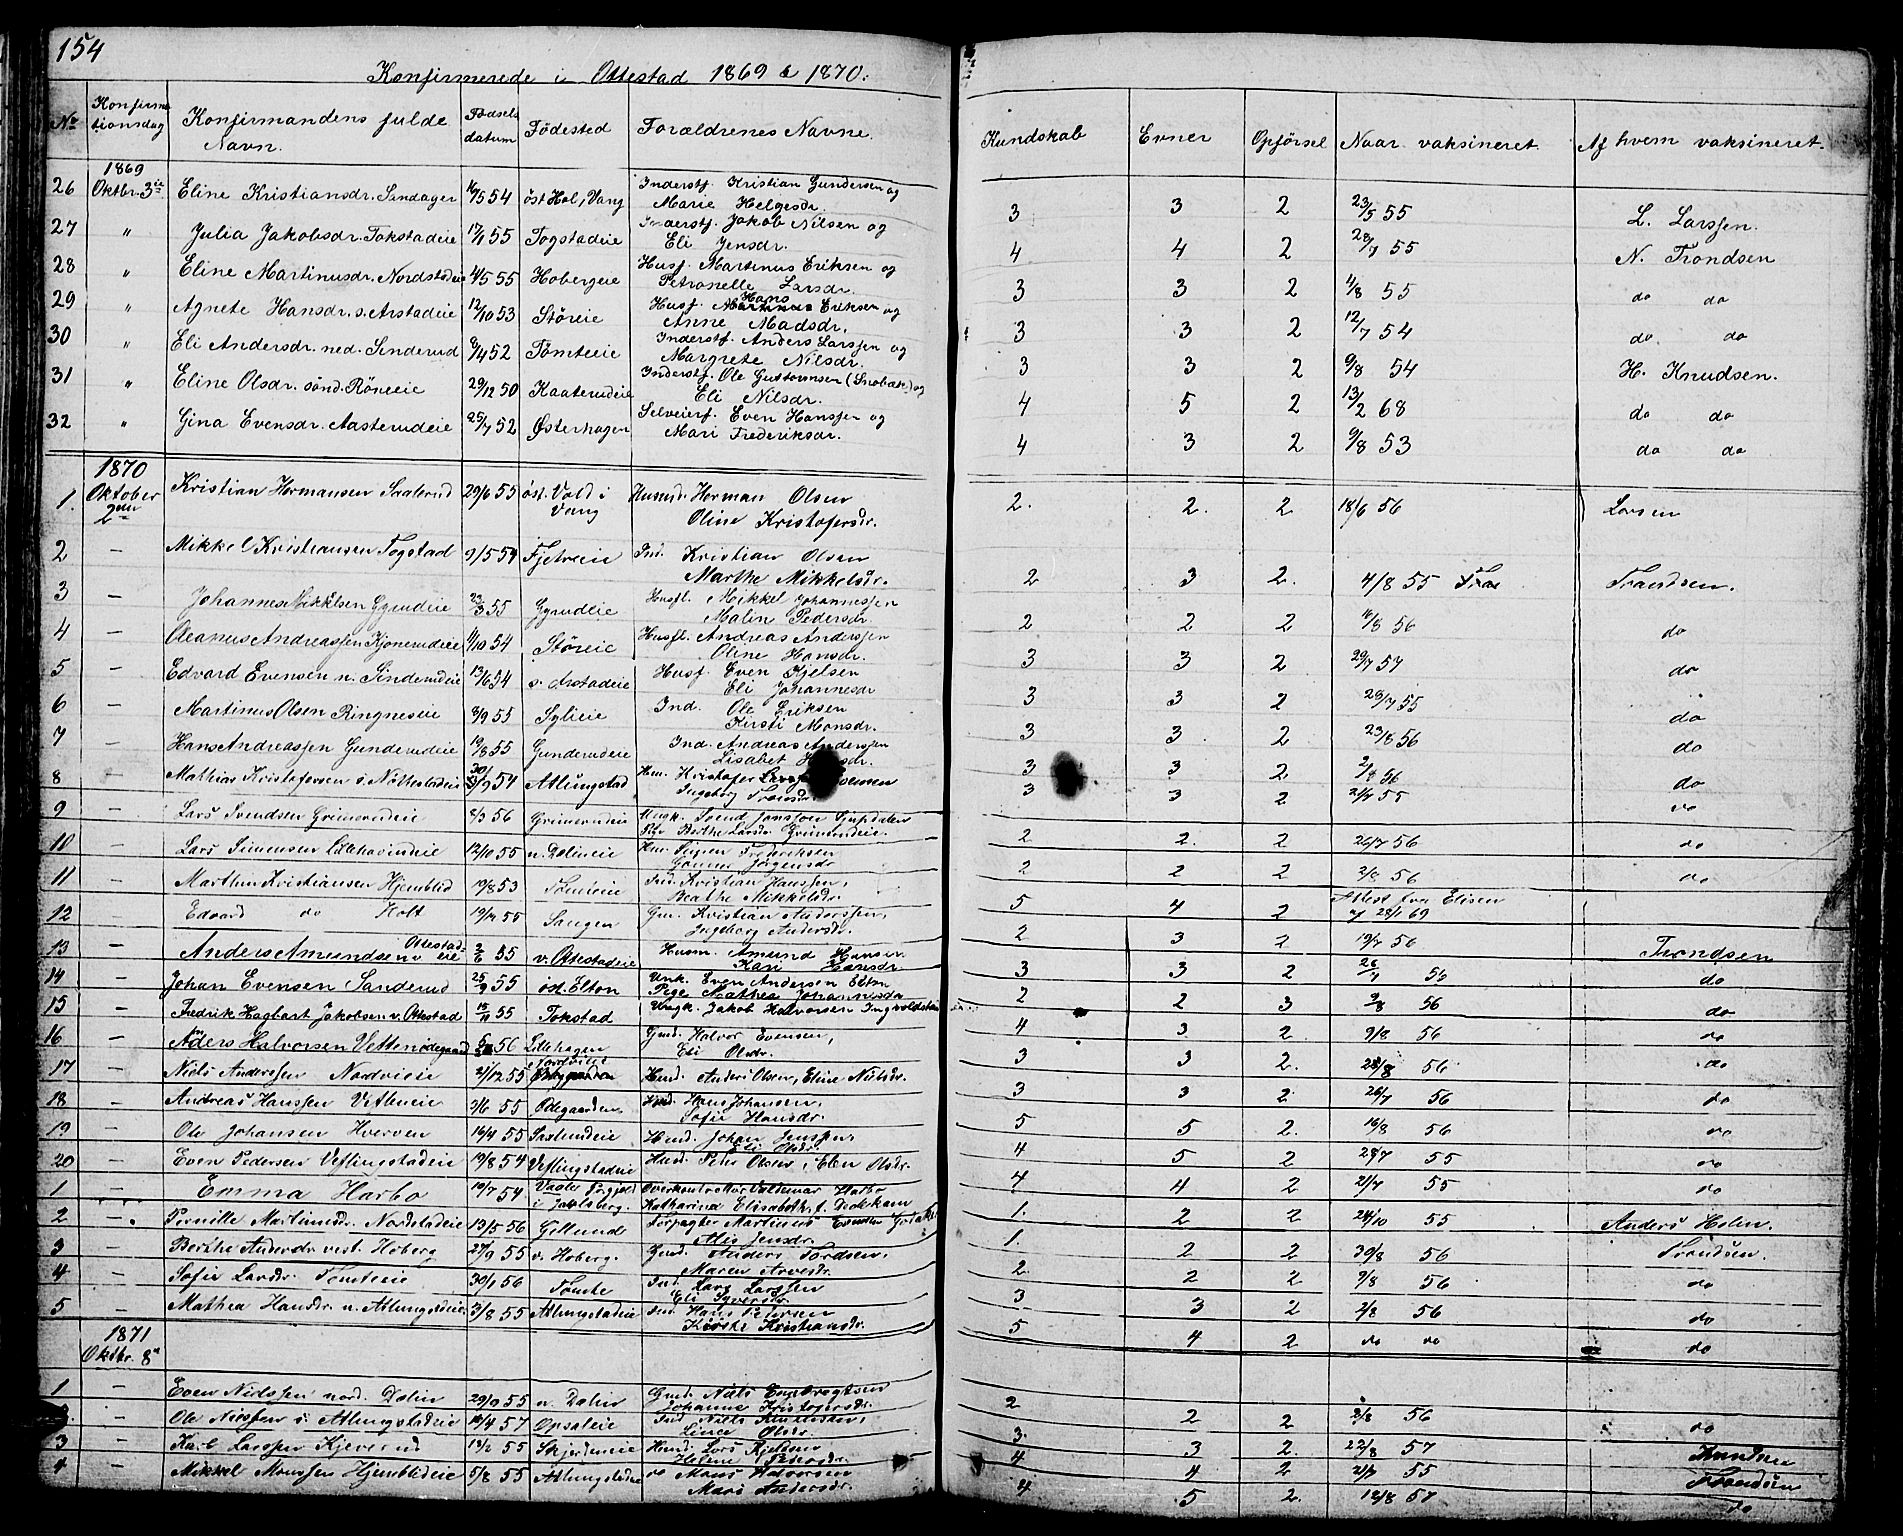 154
Konfirmerede i Ottestad 1869 & 1870.
No Konfirmationsdag Konfirmandens fulde Navn. Fødselsdatum Fødested Forældrenes Navne. Kundskab Evner Opførsel Naar vaksineret. Af hvem vaksineret.
1869
26 Oktbr. 3die Eline Kristiansdr. Sandager 16/5 54 øst Hol, Vang Inderstf. Kristian Gundersen og Marie Helgesdr. 3 3 2 23/5 55 L. Larssen.
27 " Julia Jakobsdr. Tokstadeie 17/1 55 Togstadeie Inderstf. Jakob Nilsen og Eli Jensdr. 4 4 2 28/7 55 N. Trondsen
28 " Eline Martinusdr. Nordstadeie 4/5 55 Hobergeie Husf. Martinus Eriksen og Petronelle Larsdr. 3 3 2 4/8 55 do do
29 " Agnete Hansdr. s. Arstadeie 12/10 53 Støreie Husf. Hans Eriksen og Anne Madsdr. 3 3 2 12/7 54 do do
30 " Eli Andersdr. ned. Sinderud 8/4 52 Tomteeie Inderstf. Anders Larssen og Margrete Nilsdr. 3 3 2 9/8 54 H. Knudsen.
31 " Eline Olsdr. sönd. Röneeie 29/12 50 Kaaterudeie Inderstf. Ole Guttormsen (Snobæk) og Eli Nilsdr. 4 5 2 13/2 68 do do
32 " Gina Evensdr. Aasterudeie 25/7 52 Østerhagen Selveierf. Even Hanssen og Mari Frederiksdr. 4 3 2 9/8 53 do do
1870
1. Oktober 2den Kristian Hermansen Saalerud 29/6 55 øst. Vold i Vang Husmd. Herman Olsen Oline Kristofersdr. 2. 2. 2 18/6 56 Larsen
2 — Mikkel Kristiansen Togstad 9/5 54 Fjetreeie Ind. Kristian Olsen Marthe Mikkelsdr. 2 3 2. 4/8 55 Trondsen.
3 — Johannes Mikkelsen Gyrudeie 23/3 55 Gyrudeie Husfl. Mikkel Johannessen Malin Pedersdr. 2 2 2 16/8 56 do
4 — Oleanus Andreassen Kjonerudeie 11/10 54 Støreie Husfl. Andreas Anderssen Oline Hansdr. 3 3 2 29/7 57 do
5 — Edvard Evensen n. Sinderudeie 13/6 54 s. Arstadeie Husf. Even Kjelsen Eli Johannesdr 3 3 2 28/7 55 do
6 — Martinus Olsen Ringneseie 8/9 55 Sylieie Ind. Ole Eriksen Kirsti Monsdr. 3 3. 2 23/8 56 do
7 — Hans Andreassen Gunderudeie 19/8 55 Gunderudeie Ind. Andreas Anderssen Lisabet Hansdr. 3 3 2 2/8 56 do
8 — Mathias Kristofersen s. Nøttestadeie 54 Atlungstad Hm. Kristofer Ingeborg 3 3 2 21/7 55 do
9 — Lars Svendsen Grimerudeie 8/3 56 Grimerudeie Ungk. Svend Jonssen Pge Berthe Larsdr. Grimerudeie. 2 2. 2 26/7 56 do
10 — Lars Simensen Lillehovindeie 12/10 55 n. Dalineie Hm. Simen Frederiksen Gunner Jørgensdr 2 2 2 2/8 56 do
11 — Marthin Kristiansen Hjemblid 19/8 53 Tomteeie Ind. Kristian Hanssen, Beathe Mikkelsdr. 5 4 2 Attest fra Elisen af 28/1 69
12 — Edvard do Holt 19/4 55 Saugen Gm. Kristian Anderssen, Ingeborg Andersdr. 2 3 2 19/7 56 Trondsen
13 — Anders Amundsen v. Ottestadeie 2/6 55 v. Ottestadeie Husm. Amund Hansen Kari Hansdr. 3 3 2 26/7 56 do
14 — Johan Evensen Sanderud 25/9 55 øst. Elton Unk. Even Andersen Elton Pige Mathea Johannesdr 2 2 3 2/8 56 do
15 — Fredrik Hagbart Jakobsen v. Ottestad 15/11 55 Tokstad Ungk. Jakob Halvorsen Ingvoldstad 4 3 2 9/8 56 do
16 — Anders Halvorsen Vettenødegaard 56 Lillehagen Gmd. Halvor Evensen, Eli Olsdr. 3 3 2. 23/8 56 do
17 — Niels Anderssen Nordvieie 21/12 55 Nordvieie Husd. Anders Olsen, Eline Nielsdr. 3 3 2 26/7 56 do
18 — Andreas Hanssen Vetleneie 9/6 55 Ødegaarden Hmd. Hans Johansen, Sofie Hansdr. 5 5 2. 16/8 56 do
19 — Ole Johansen Hverven 16/4 55 Saxlundeie Husd. Johan Jenssen, Eli Olsdr. 4 5 2 28/7 55 do
20 — Even Pedersen Veflingstadeie 19/8 54 Veflingstadeie Husd. Peder Olsen, Elen Olsdr. 4 4 2 21/7 55 do
1 — Emma Harbo 19/7 54 Vaale Prgjeld i Jarlsberg. Overkontrollør Valdemar Harbo Katharina Elisabeth f. Dockkam 1. 2 2 24/10 55 Anders Holm.
2 — Pernille Martinusdr. Nordstadeie 13/5 56 Gillund Forpagter Martinus Evensen Alis Jensdr. 1. 2 2 30/8 56 Trondsen.
3 — Berthe Andersdr. vest. Hoberg 27/9 55 v. Hoberg. Gmd. Anders Tordsen, Maren Arvesdr. 2. 2 2 9/8 56 do
4 — Sofie Larsdr. Tomteeie 30/1 56 Tomte Ind. Lars Larssen Eli Syversdr. 3 3 2 2/8 56 do
5 — Mathea Hansdr. n. Atlungstadeie 3/8 55 Atlungstadeie Ind. Hans Pedersen Kirsti Kristiansdr. 5 4 2 do do do
1871
Oktbr. 8de
1 — Even Nielssen nord. Dalin 29/9 55 n. Dalin Gmd. Niels Engebregtsen Johanne Kristofersdr. 2 2 2 2/8 56 do
2. — Ole Nielssen s. Atlungstadeie 18/4 57 Opsaleie Ind. Niels Line Olsdr. 3. 3 2. 22/8 57 Knudsen
3 — Karl Larssen Kjeverud 13/2 55 Skjerdeneie Husd. Lars Kjeldsen Helene Pedersdr. 4 4 2 21/7 55 Trondsen
4 — Mikkel Monssen Hjemblideie 5/8 55 Atlungstadeie do Mons Halvorsen Mari Andersdr. 4 5 2. 18/8 57 do